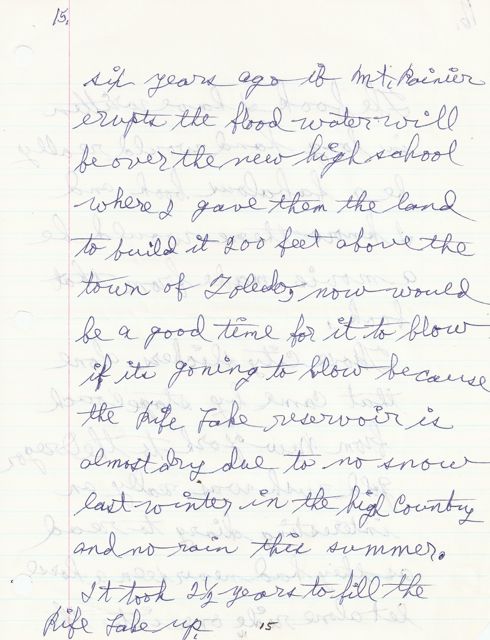 15.
six years ago if Mt. Rainier
erupts the flood water will
be over the new high school
where I gave them the land
to build it 200 feet above the
town of Toledo, now would
be a good time for it to blow
if its goning to blow because
the Rife Lake reservoir is
almost dry due to no snow
last winter in the high Country
and no rain this summer.
It took 2½ years to fill the
Rife Lake up.
15